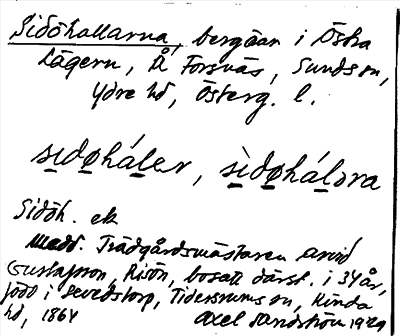 Sidöhallarna, bergåsar i Östra
Lägern, Å Forsnäs, Sunds sn,
Ydre hd, Österg. l.
sidøháler, sìdøhálṣra
Sidöh. ek
Medd. Trädgårdsmästaren Arvid
Gustafsson, Risön, bosatt därst. i 34 år,
född i Sevedstorp, Tidersrums sn, Kinda
hd, 1864 Axel Sandström 1929